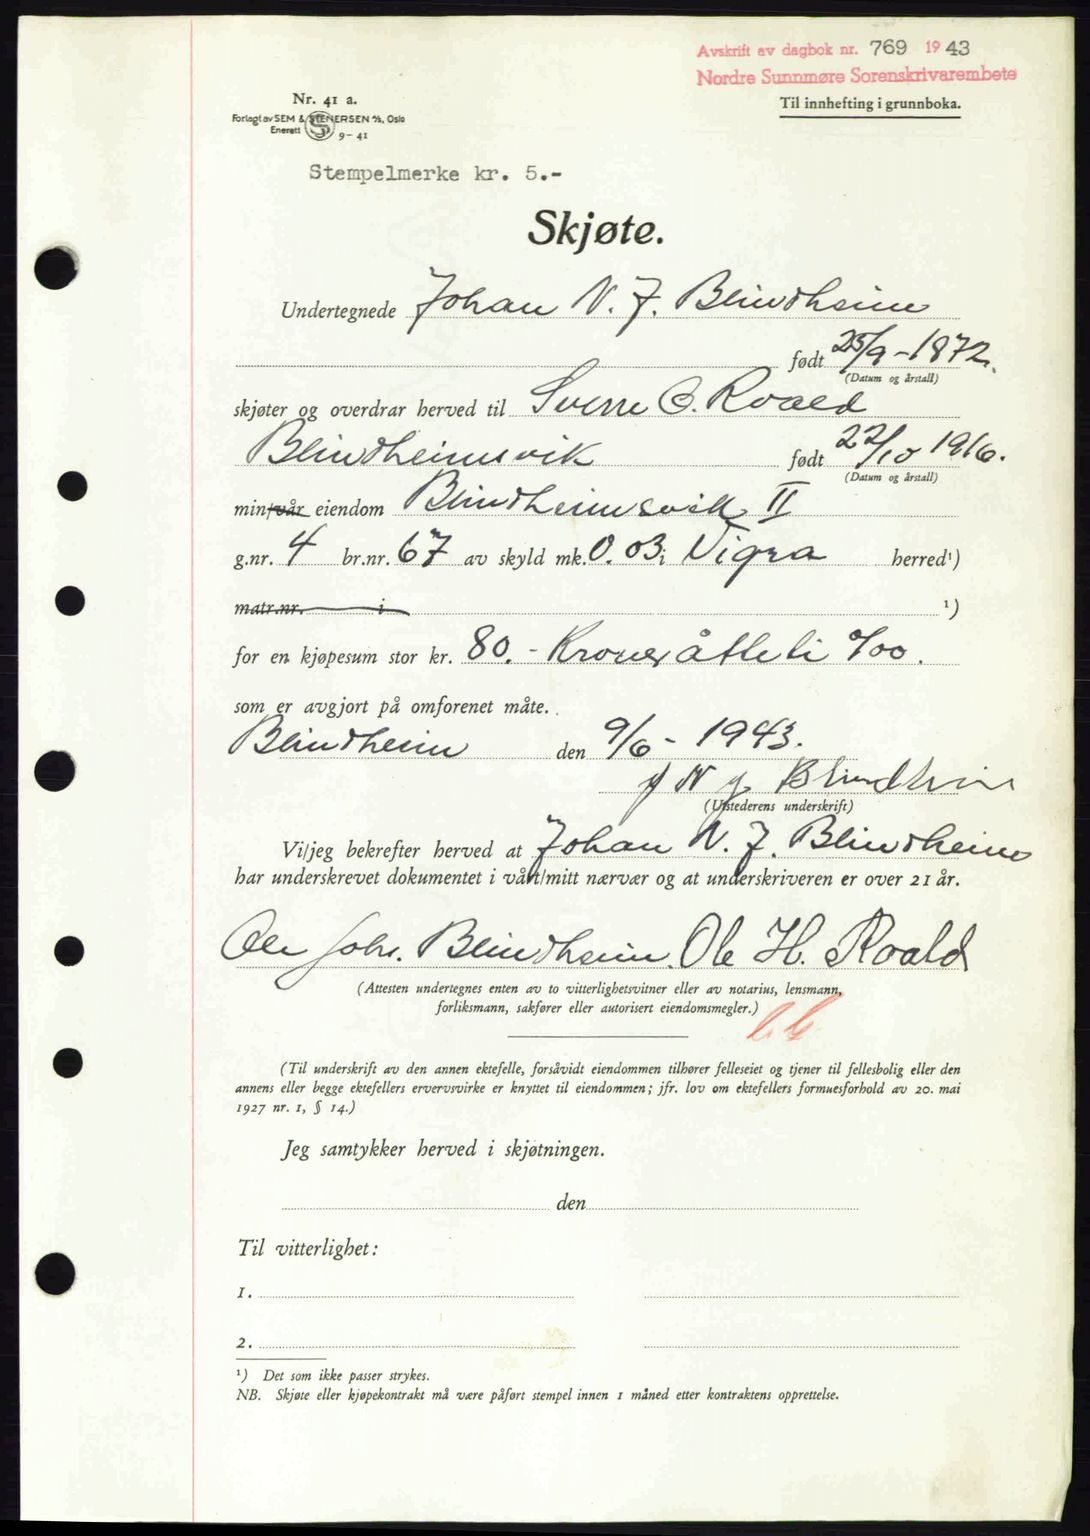 Avskrift av dagbok nr. 769 1943
Nordre Sunnmøre Sorenskrivarembete
Til innhefting i grunnboka.
Nr. 41 a.
Forlagt av SEM & STENERSEN A/S, Oslo
Enerett S 9-41
Stempelmerke kr. 5.-
Skjøte.
Undertegnede Johan N. J. Blindheim
født 25/9-1872.
(Datum og årstall)
skjøter og overdrar herved til Sverre O. Roald
Blindheimsvik født 22/10 1916.
(Datum og årstall)
min/vår eiendom Blindheimsvik II
g.nr. 4 br.nr. 67 av skyld mk. 0.03 i Vigra herred¹)
matr.nr. i ¹)
for en kjøpesum stor kr. 80.- Kroner åtteti 0/00.
som er avgjort på omforenet måte.
Blindheim den 9/6-1943.
J N J Blindheim
(Utstederens underskrift)
Vi/jeg bekrefter herved at Johan N. J. Blindheim
har underskrevet dokumentet i vårt/mitt nærvær og at underskriveren er over 21 år.
Ole Johs. Blindheim. Ole H. Roald
(Attesten undertegnes enten av to vitterlighetsvitner eller av notarius, lensmann,
forliksmann, sakfører eller autorisert eiendomsmegler.)
(Til underskrift av den annen ektefelle, forsåvidt eiendommen tilhører felleseiet og tjener til fellesbolig eller den
annens eller begge ektefellers ervervsvirke er knyttet til eiendommen; jfr. lov om ektefellers formuesforhold av 20. mai
1927 nr. 1, § 14.)
Jeg samtykker herved i skjøtningen.
den
Til vitterlighet:
1.
2.
¹) Det som ikke passer strykes.
NB. Skjøte eller kjøpekontrakt må være påført stempel innen 1 måned etter kontraktens opprettelse.